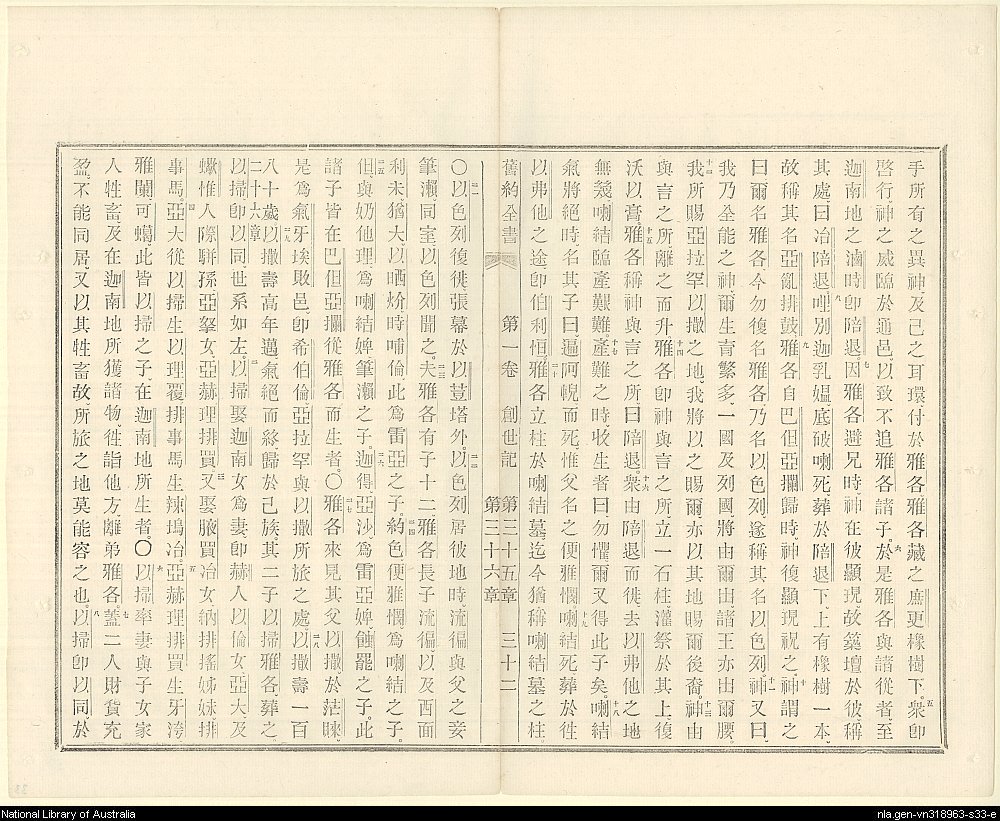 手所有之異神、及己之耳環付於雅各、雅各藏之庶更橡樹下。五衆卽
啓行、神之威臨於通邑、以致不追雅各諸子。六於是雅各與諸從者至
迦南地之滷時卽陪退。七因雅各避兄時、神在彼顯現、故築壇於彼稱
其處、曰冶陪退。八哩別迦乳媼底破喇死葬於陪退下、上有橡樹一本、
故稱其名亞亂排鼓。九雅各自巴但亞攔歸時、神復顯現祝之。十神謂之
曰爾名雅各今勿復名雅各、乃名以色列、遂稱其名以色列。十一神又曰、
我乃全能之神、爾生育繁多、一國及列國將由爾由諸王亦由爾腰。
十二我所賜亞拉罕以撒之地、我將以之賜爾、亦以其地賜爾後裔。十三神由
與言之所離之而升。十四雅各卽神與言之所立一石柱、灌祭於其上復
沃以膏。十五雅各稱神與言之所曰陪退。十六衆由陪退而徙、去以弗他之地
無幾、喇結臨產艱難。十七產難之時、收生者曰、勿懼爾又得此子矣。十八喇結
氣將絕時、名其子曰逼阿怩而死、惟父名之便雅憫。十九喇結死葬於往
以弗他之途卽伯利恒。二十雅各立柱於喇結墓、迄今猶稱喇結墓之柱。
舊約全書 第一卷 創世記 第三十五章 第三十六章 三十二
〇二一以色列復徙、張幕於以荳塔外。二二以色列居彼地時、流徧與父之妾
筆瀨、同室、以色列聞之。二三夫雅各有子十二、雅各長子流徧、以及西面
利未、猶大、以哂炌時哺倫、此爲雷亞之子。二四約色便雅憫爲喇結之子。
二五但、與奶他理爲喇結婢筆瀨之子。二六迦得、亞沙、爲雷亞婢蝕罷之子。此
諸子皆在巴但亞攔從雅各而生者。〇二七雅各來見其父以撒於茫睞、
是爲氣牙埃敗邑、卽希伯倫亞拉罕與以撒所旅之處。二八以撒壽一百
八十歲。二九以撒壽高年邁氣絕而終、歸於己族、其二子以掃雅各葬之。
二十六章以掃、卽以同世系如左。二以掃娶迦南女爲妻、卽赫人以倫女、亞大及
蠍惟人際聠孫亞拏女、亞赫理排買。三又娶腋買冶女、納排搖姊妹排
事馬。四亞大從以掃生以理覆、排事馬生辣塢冶、五亞赫理排買生牙洿
雅闌、可蠍、此皆以掃之子、在迦南地所生者。〇六以掃率妻與子女家
人牲畜、及在迦南地所獲諸物、往詣他方、離弟雅各。七蓋二人財貨充
盈、不能同居、又以其牲畜故所旅之地莫能容之也。八以掃卽以同於
National Library of Australia
nla.gen-vn318963-s33-e